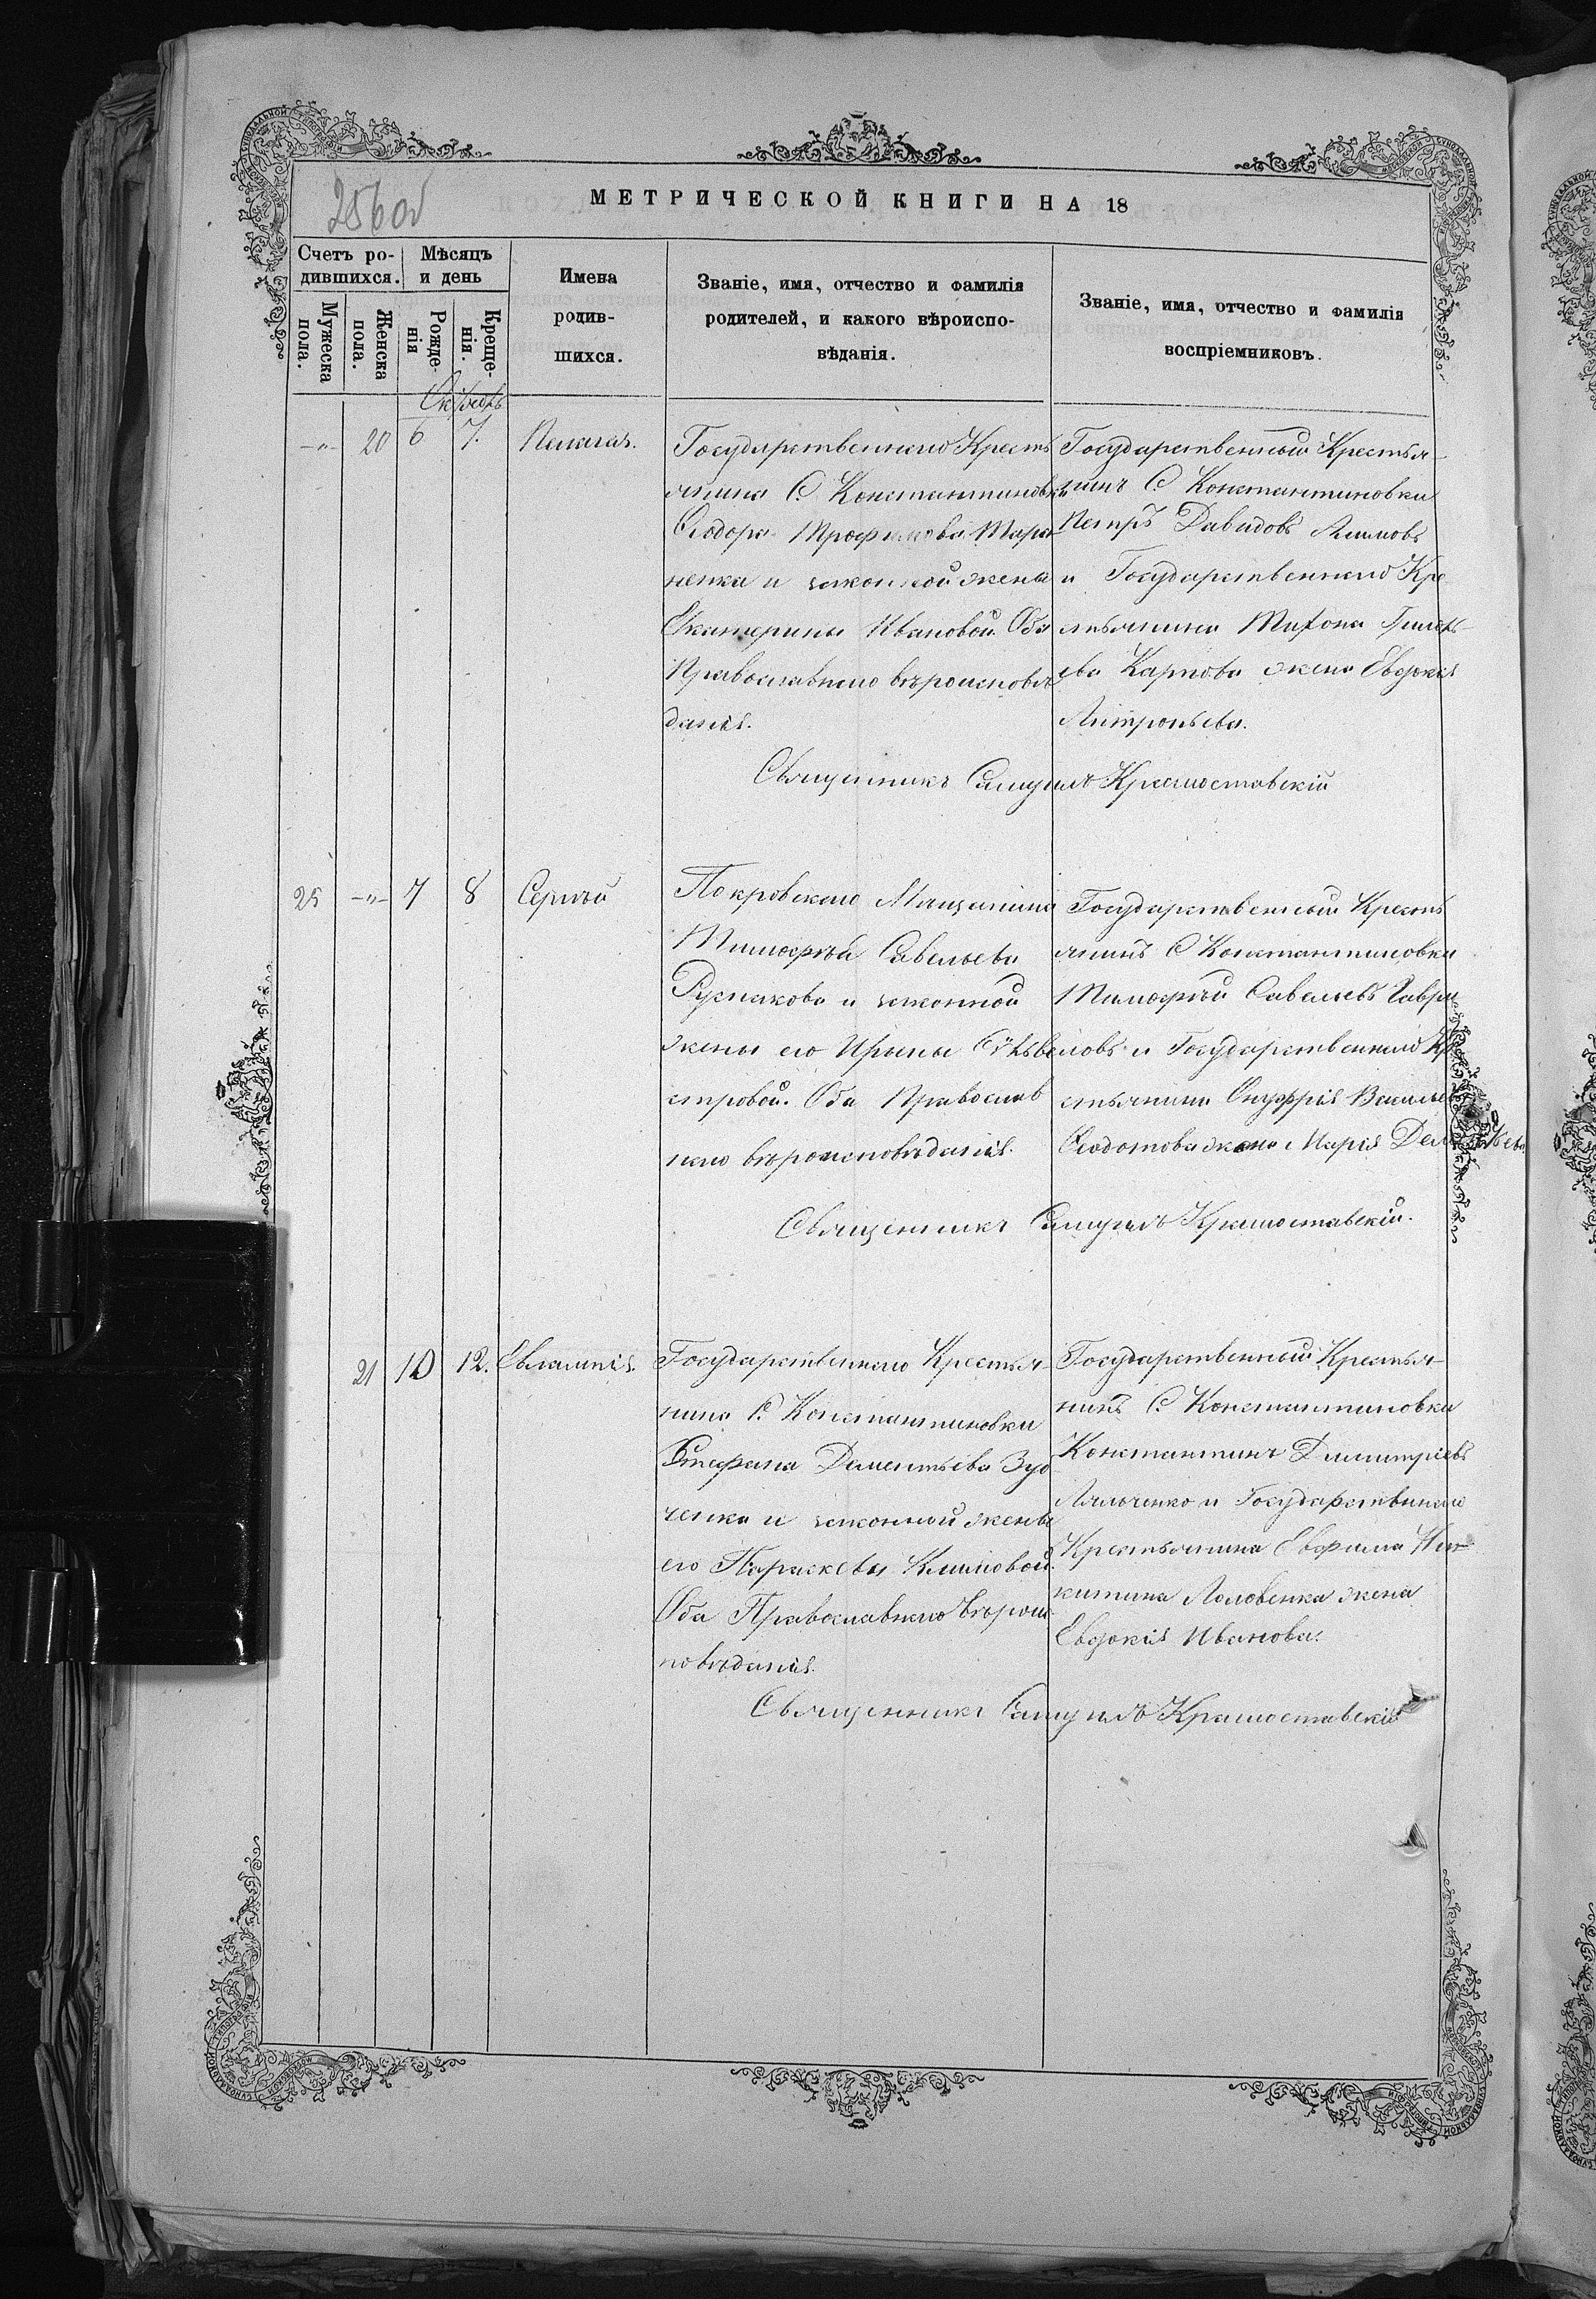 256об
МЕТРИЧЕСКОЙ КНИГИ НА 18
Счетъ ро-
дившихся.
Мѣсяцъ
и день
Мужеска
пола.
Женска
пола.
Рожде-
нія
Креще-
нія.
Имена
родив-
шихся.
Званіе, имя, отчество и фамилія
родителей, и какого вѣроиспо-
вѣданія.
Званіе, имя, отчество и фамилія
воспріемниковъ.
Октябрь
-"- 20 6 7. Пелагая.
Государственнаго Кресть
янина С. Константиновки
Ѳеодора Трофимова Тара
ненка и законной жены
Екатерины Ивановой Оба
Православнаго вѣроисповѣ
данія.
Государственный Крестья-
нинъ С. Константиновки
Петръ Давидовъ
и Государственнаго Кре
стьянина Тихона Григорь
ева Карпова жена Евдокія
Митрофьева.
Священникъ Самуилъ Красноставскій
25 -"- 7 8 Сергѣй
Покровскаго Мещанина
Тимоѳѣя Савельева
Руснакова и законной
жены его Ирины Сѵльве
стровой. Оба Православ
наго вѣроисповѣданія.
Государственный Кресть
янинъ С Константиновки
Тимоѳѣй Савельевъ Гаври
ловъ и Государственнаго Кр
стьянина Онуфрія Васильев
Ѳеодотова жена Марія
Священникъ Самуилъ Красноставскій.
21 10 12. Евлампія.
Государственнаго Крестья-
нина С. Константиновки
Стефана Дементьева Зуб
ченка и законной жены
его Параскевы Климовой.
Оба Православнаго вѣроис
повѣданія.
Государственный Крестья-
нинъ С. Константиновки
Константинъ Димитріевъ
Ляльченко и Государственнаго
Крестьянина Евфима Ни-
китина Головенка жена
Евдокія Иванова.
Священникъ Самуилъ Красноставскій